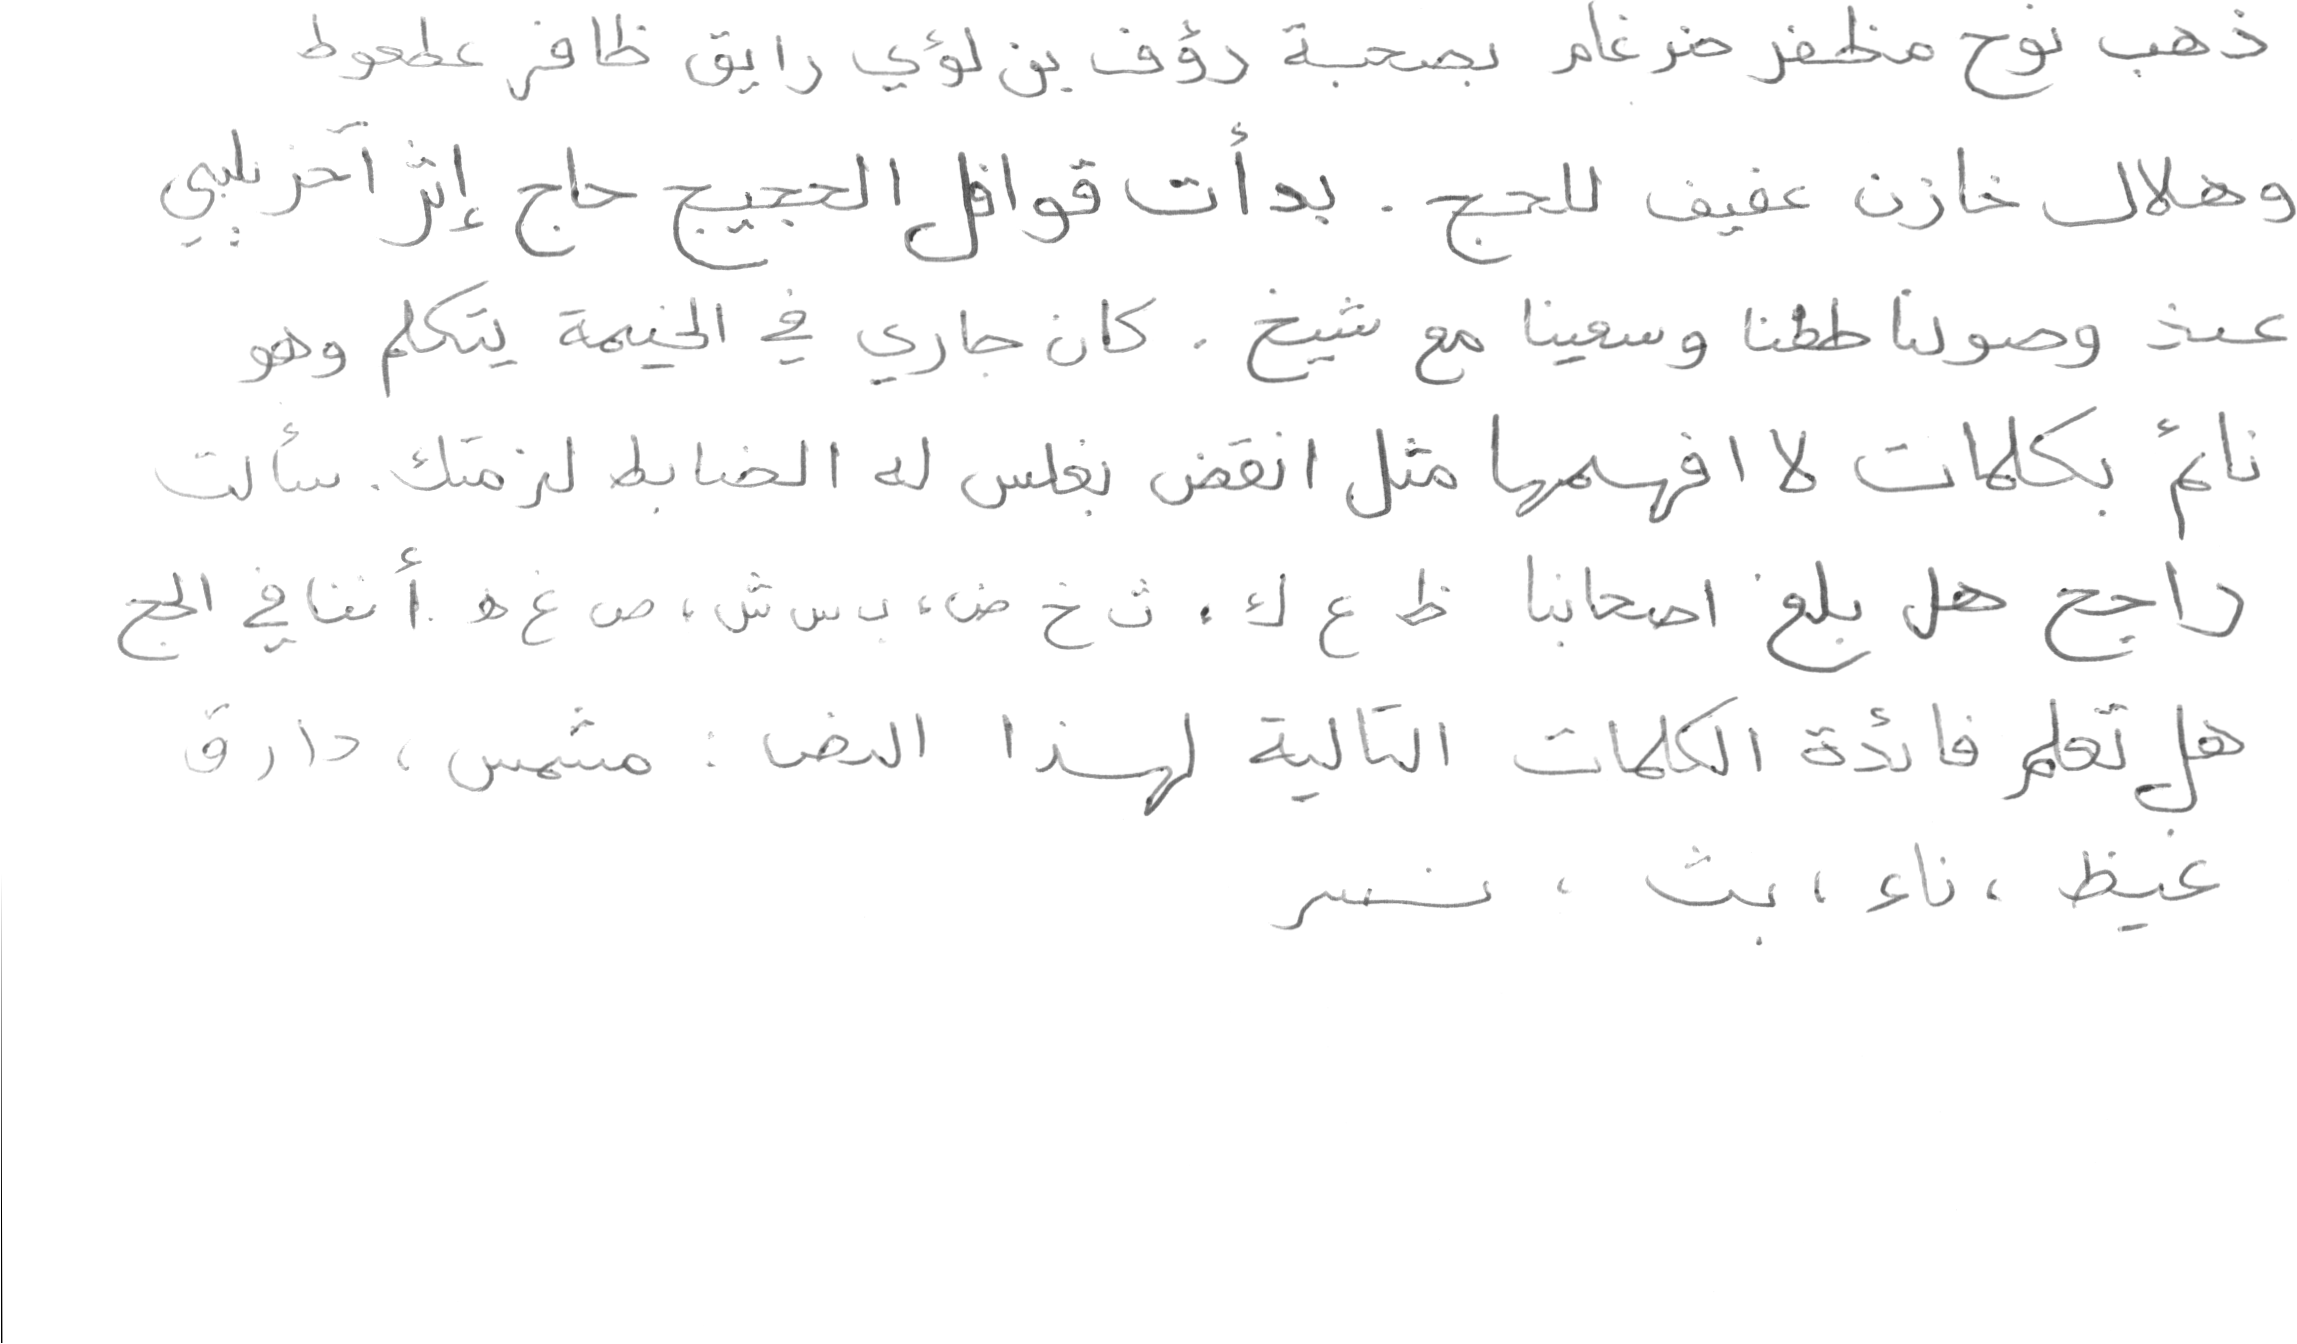 ذهب نوح مظفر ضرغام بصحبة رؤف بن لؤي رايق ظافر عطعوط
وهلال خازن عفيف للحج . بدأت قوافل الحجيج حاج إثر آخر يلبي
عند وصولنا طفنا وسعينا مع شيخ . كان جاري في الخيمة يتكلم وهو
نائم بكلمات لا افهمها مثل انقض بغلس له الضابط لزمتك . سألت
راجح هل بلغ اصحابنا ظ ع ك ، ث خ ض ، ب س ش ، ص غ ه . أننا في الحج
هل تعلم فائدة الكلمات التالية لهذا النص : مشمس ، دارق
غيظ ، ناء ، بث ، نسر